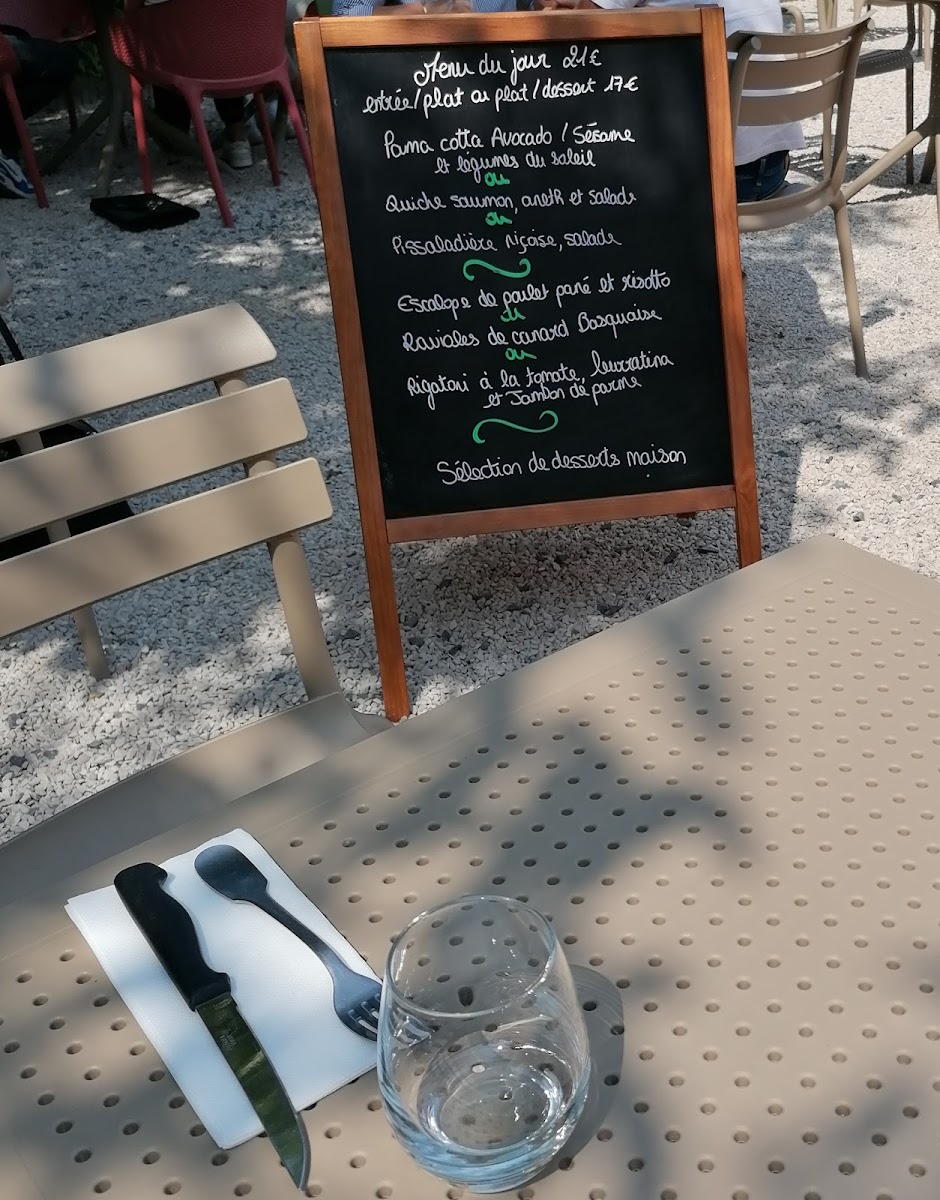 Menu du jour 21€
entrée/plat ou plat/dessert 17€
Panna cotta Avocado / Sésame
et légumes du soleil
ou
Quiche saumon, aneth et salade
ou
Pissaladière niçoise, salade
Escalope de poulet pané et risotto
ou
Ravioles de canard Basquaise
ou
Rigatoni à la tomate, burratina
et Jambon de parme
Sélection de desserts maison